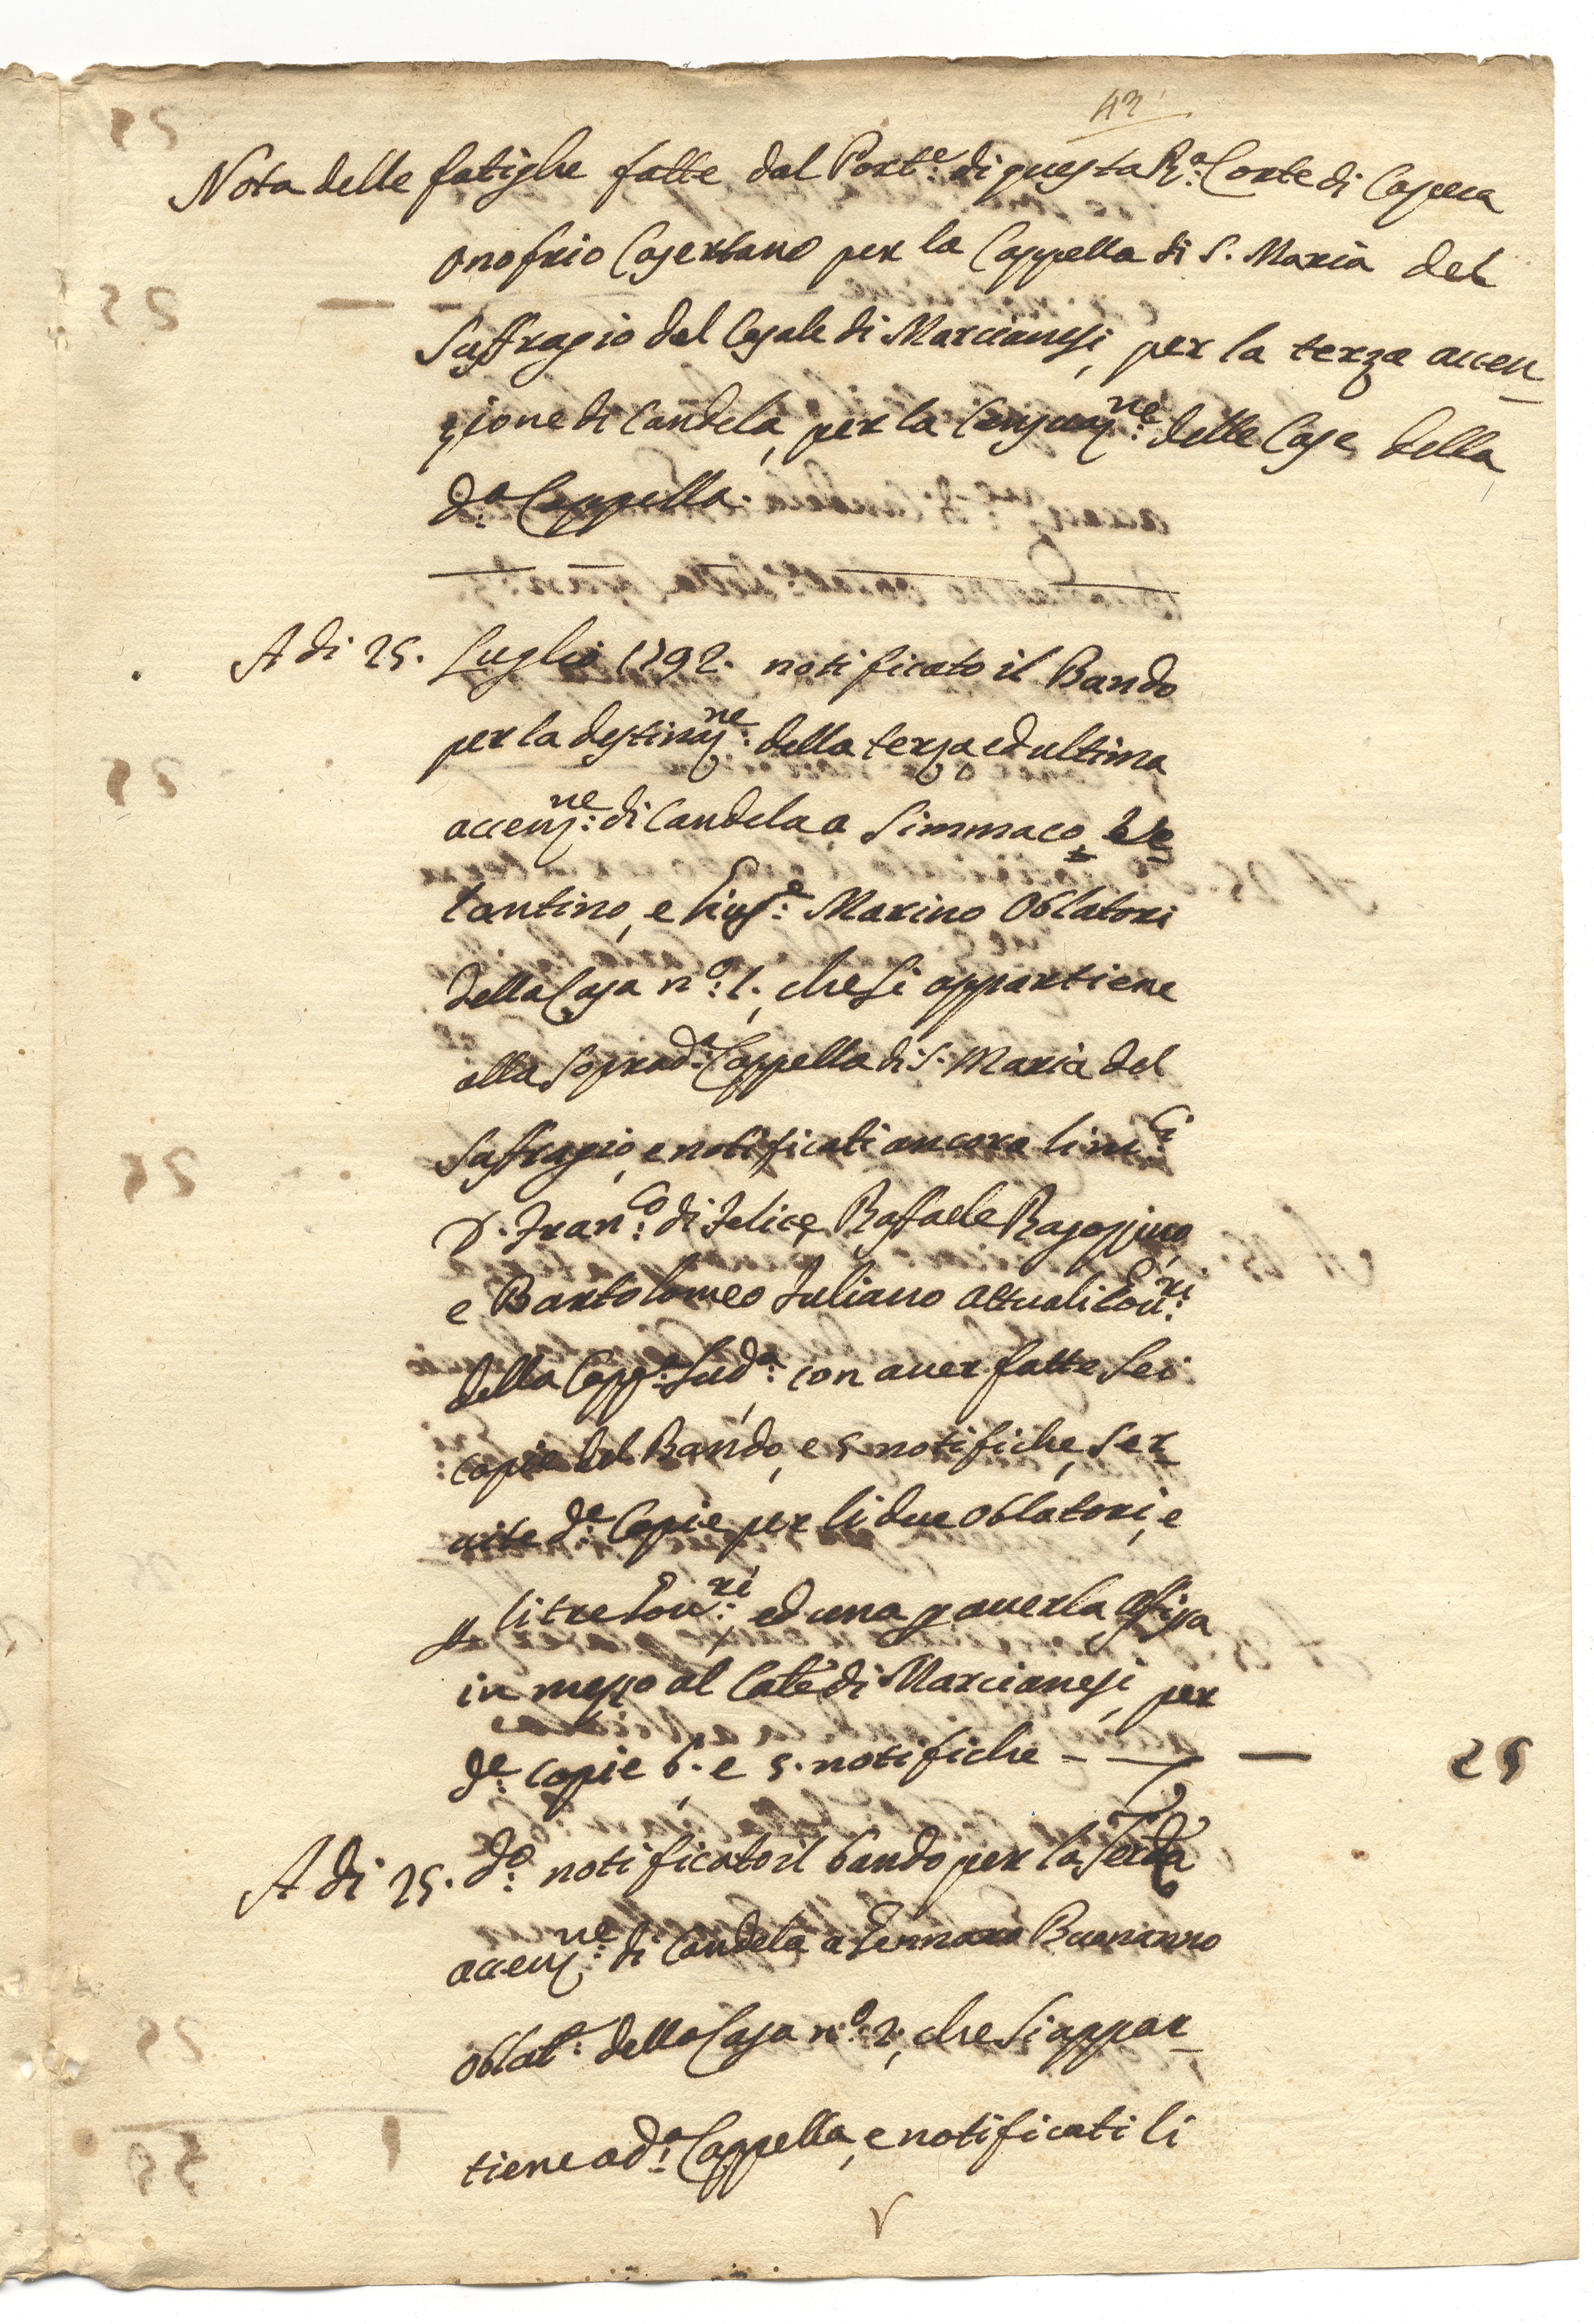 43
Nota delle fatighe fatte dal Port.e di questa R.a Corte di Capua
Onofrio Casertano per la Cappella di S. Maria del
Suffragio del Casale di Marcianesi, per la terza accen
zione di Candela, per la Censuaz.ne delle Case della
d.a Cappella.
A di 25. Luglio 1792. notificato il Bando
per la destinaz.ne della terza, ed ultima
accenz.ne di Candela a Simmaco
tantino, e Gius.e Marino Oblatori
della Casa n.o 1., che si appartiene
alla soprad.a Cappella di S. Maria del
Suffragio, e notificati ancora li m.ci
D. Fran.co di Felice, Raffaele Ragozzino,
e Bartolomeo Iuliano attuali Gov.ri
della Capp.a Sud.a, con aver fatte sei
copie del Bando, e 5 notifiche, ser
vite d.e Copie per li due Oblatori, e
p li tre Gov.ri, ed una p averla affissa
in mezzo al Cale di Marcianesi, per
d.e copie 6. e 5. notifiche - — — 25
A di 25. d.o notificato il bando per la Terza
accenz.ne di Candela a Gennaro Buonanno
oblat.e della Casa n.o 2, che si appar
tiene a d.a Cappella, e notificati li